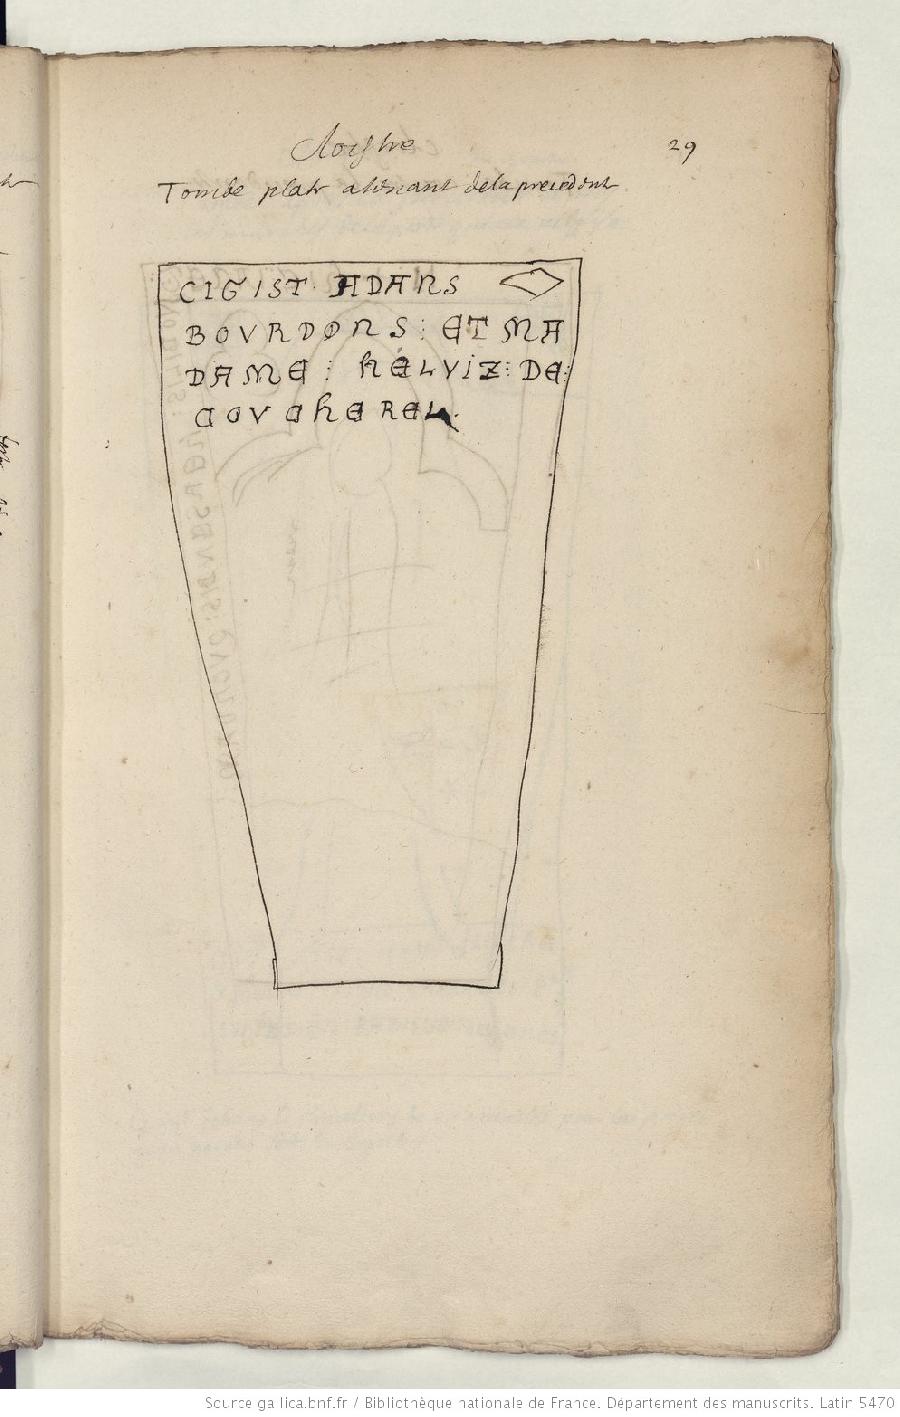 Cloistre
29
Tombe platte attenant de la precedente
CIGIST ADANS
BOVRDONS : ET MA
DAME : hELVIZ : DE :
COVChEREL.
Source gallica.bnf.fr / Bibliothèque nationale de France. Département des manuscrits. Latin 5470